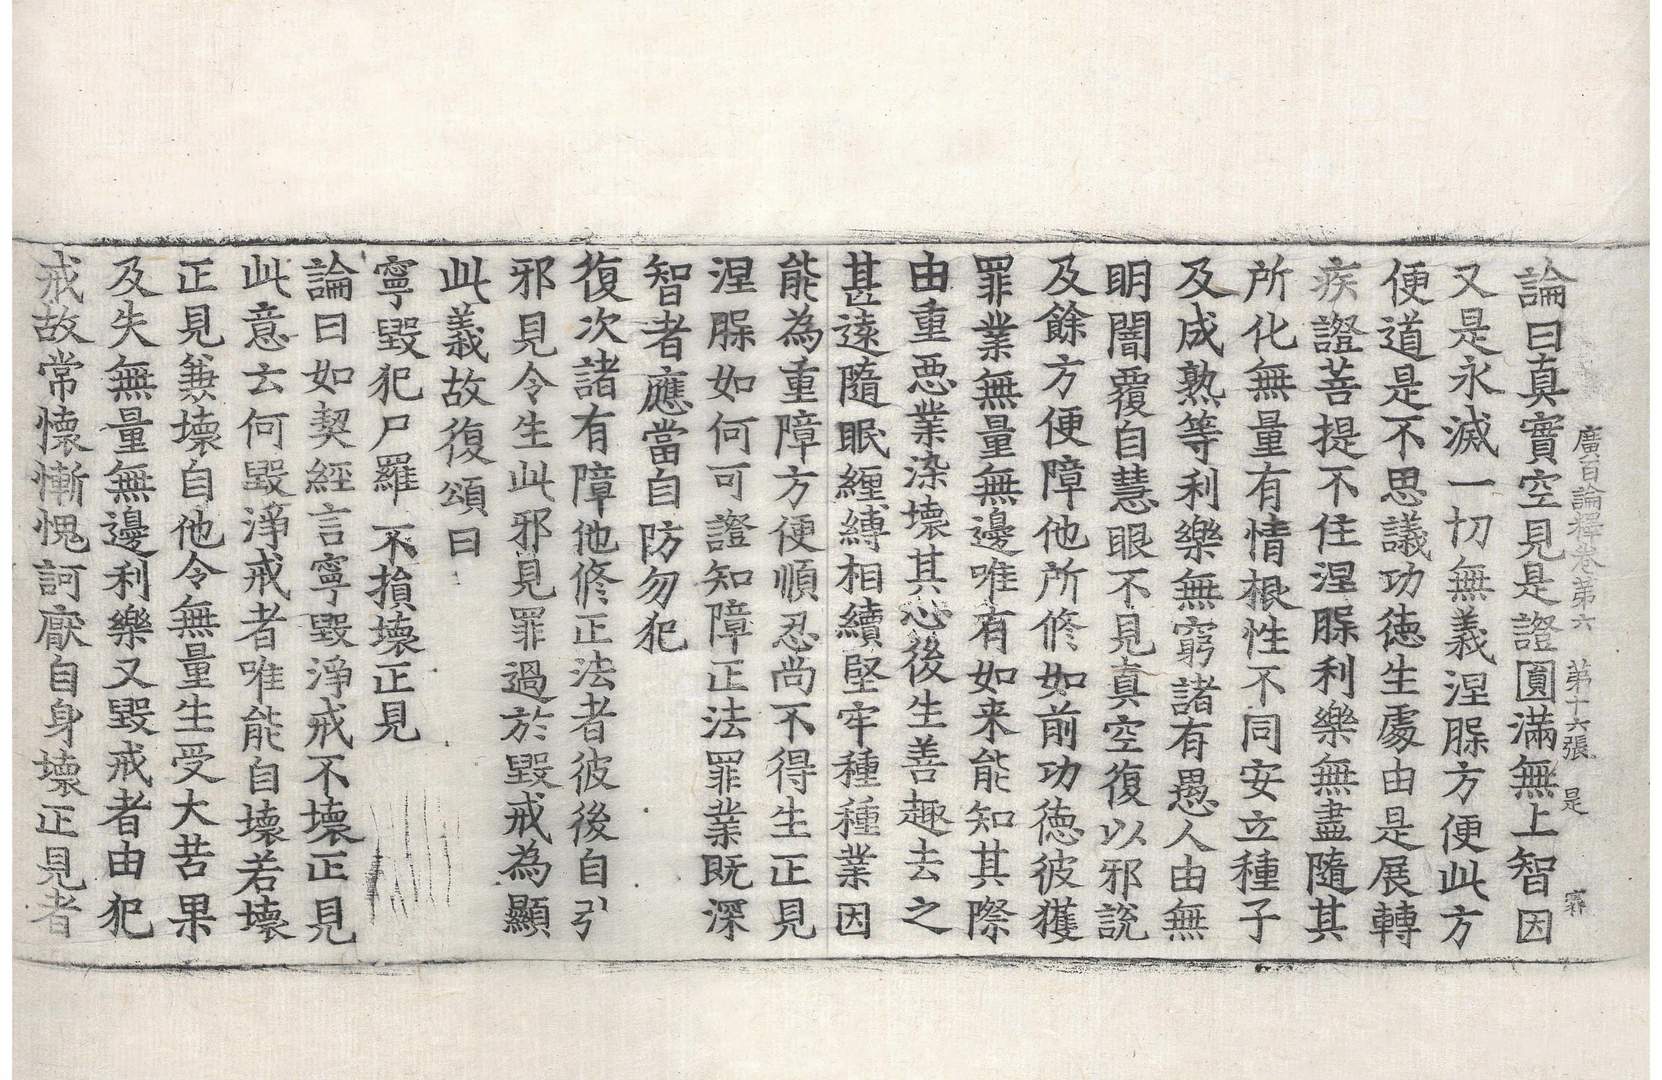 廣百論釋卷第六 第十六張 是
論曰真實空見是證圓滿無上智因
又是永滅一切無義涅槃方便此方
便道是不思議功德生處由是展轉
疾證菩提不住涅槃利樂無盡隨其
所化無量有情根性不同安立種子
及成熟等利樂無窮諸有愚人由無
明闇覆自慧眼不見真空復以邪說
及餘方便障他所修如前功德彼獲
罪業無量無邊唯有如来能知其際
由重惡業染壞其心後生善趣去之
甚遠隨眠纏縛相續堅牢種種業因
能為重障方便順忍尚不得生正見
涅槃如何可證知障正法罪業既深
智者應當自防勿犯
復次諸有障他修正法者彼後自引
邪見令生此邪見罪過於毀戒為顯
此義故復頌曰
寧毀犯尸羅 不損壞正見
論曰如契經言寧毀淨戒不壞正見
此意云何毀淨戒者唯能自壞若壞
正見兼壞自他令無量生受大苦果
及失無量無邊利樂又毀戒者由犯
戒故常懷慚愧訶厭自身壞正見者